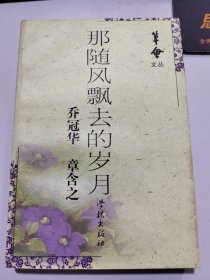 那随风飘去的岁月
乔冠华 章含之
笔会
文丛
学林出版社